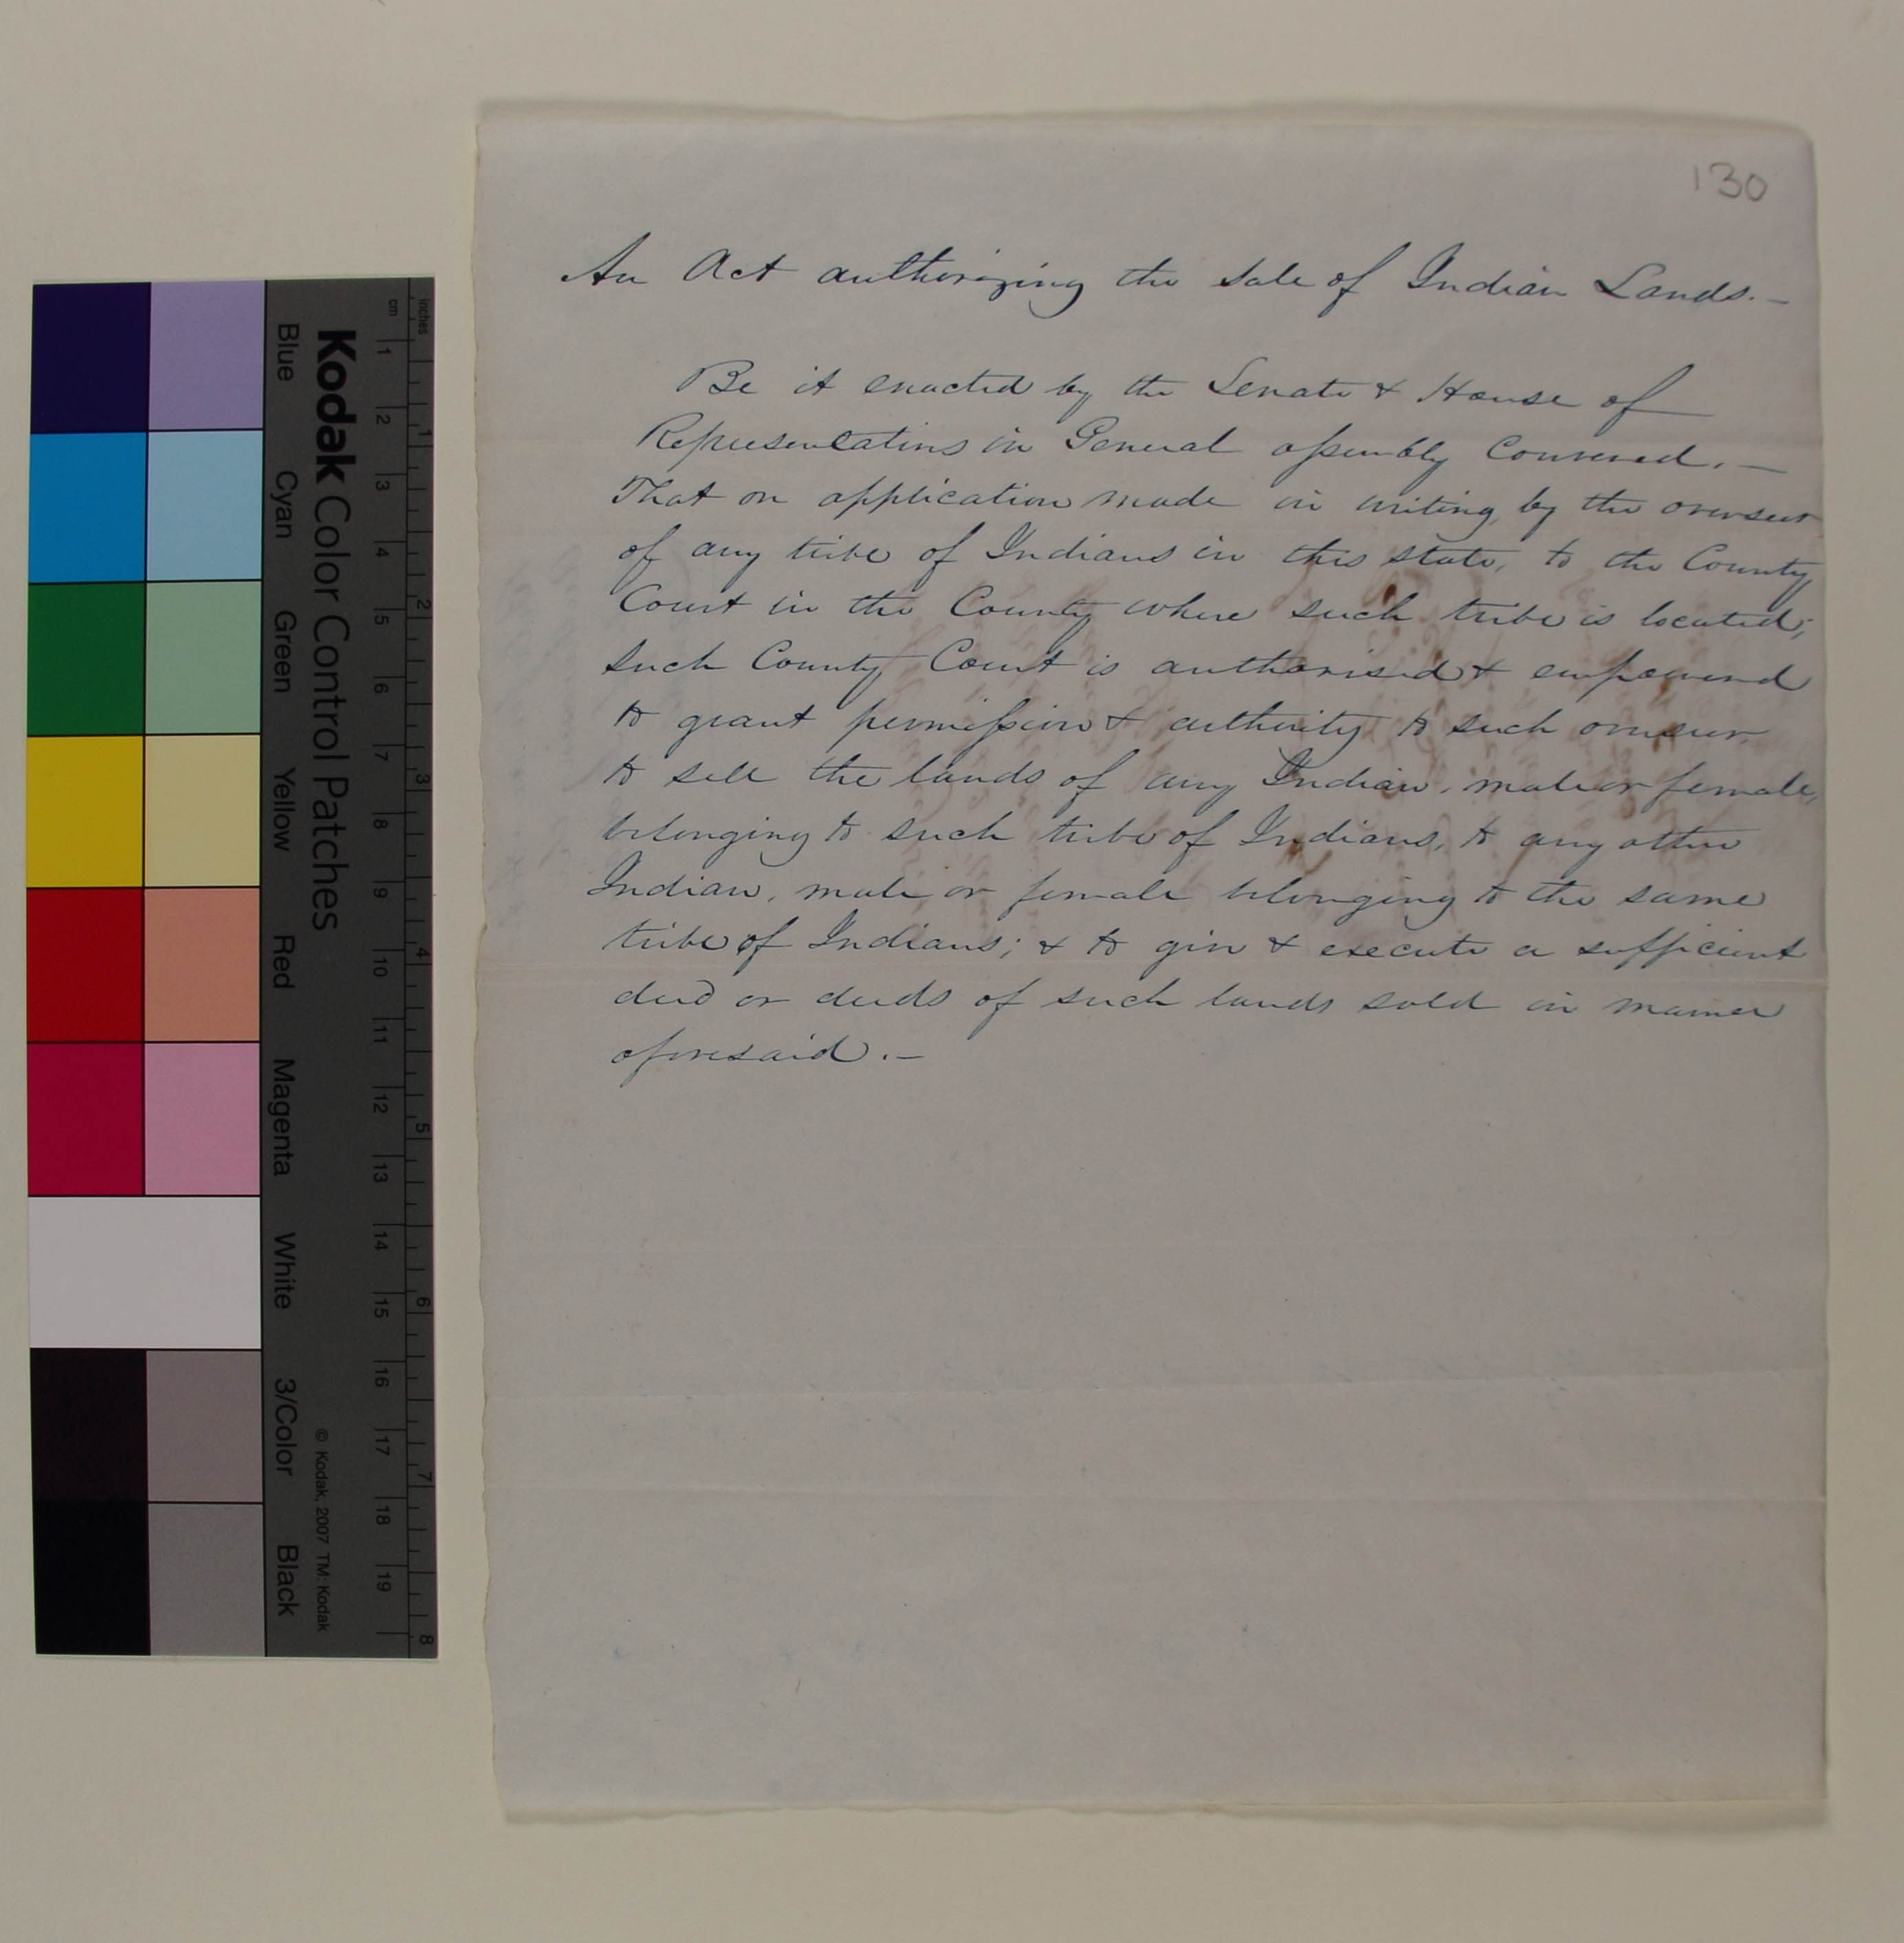 130
An Act authorizing the Sale of Indian Lands.—
Be it enacted by the Senate & House of
Representatives in General assembly Convened.—
That on application made in writing, by the overseer
of any tribe of Indians in this state, to the County
Court in the County where such tribe is located;
such County Court is authorised & empowered
to grant permission & authority to such overseer
to sell the lands of any Indian, male or female,
belonging to such tribe of Indians, to any other
Indian, male or female belonging to the same
tribe of Indians; & to give & execute a sufficient
deed or deeds of such lands sold in manner
aforesaid.—
Kodak Color Control Patches
© Kodak, 2007 TM: Kodak
Blue Cyan Green Yellow Red Magenta White 3/Color Black
cm 1 2 3 4 5 6 7 8 9 10 11 12 13 14 15 16 17 18 19
inches 1 2 3 4 5 6 7 8